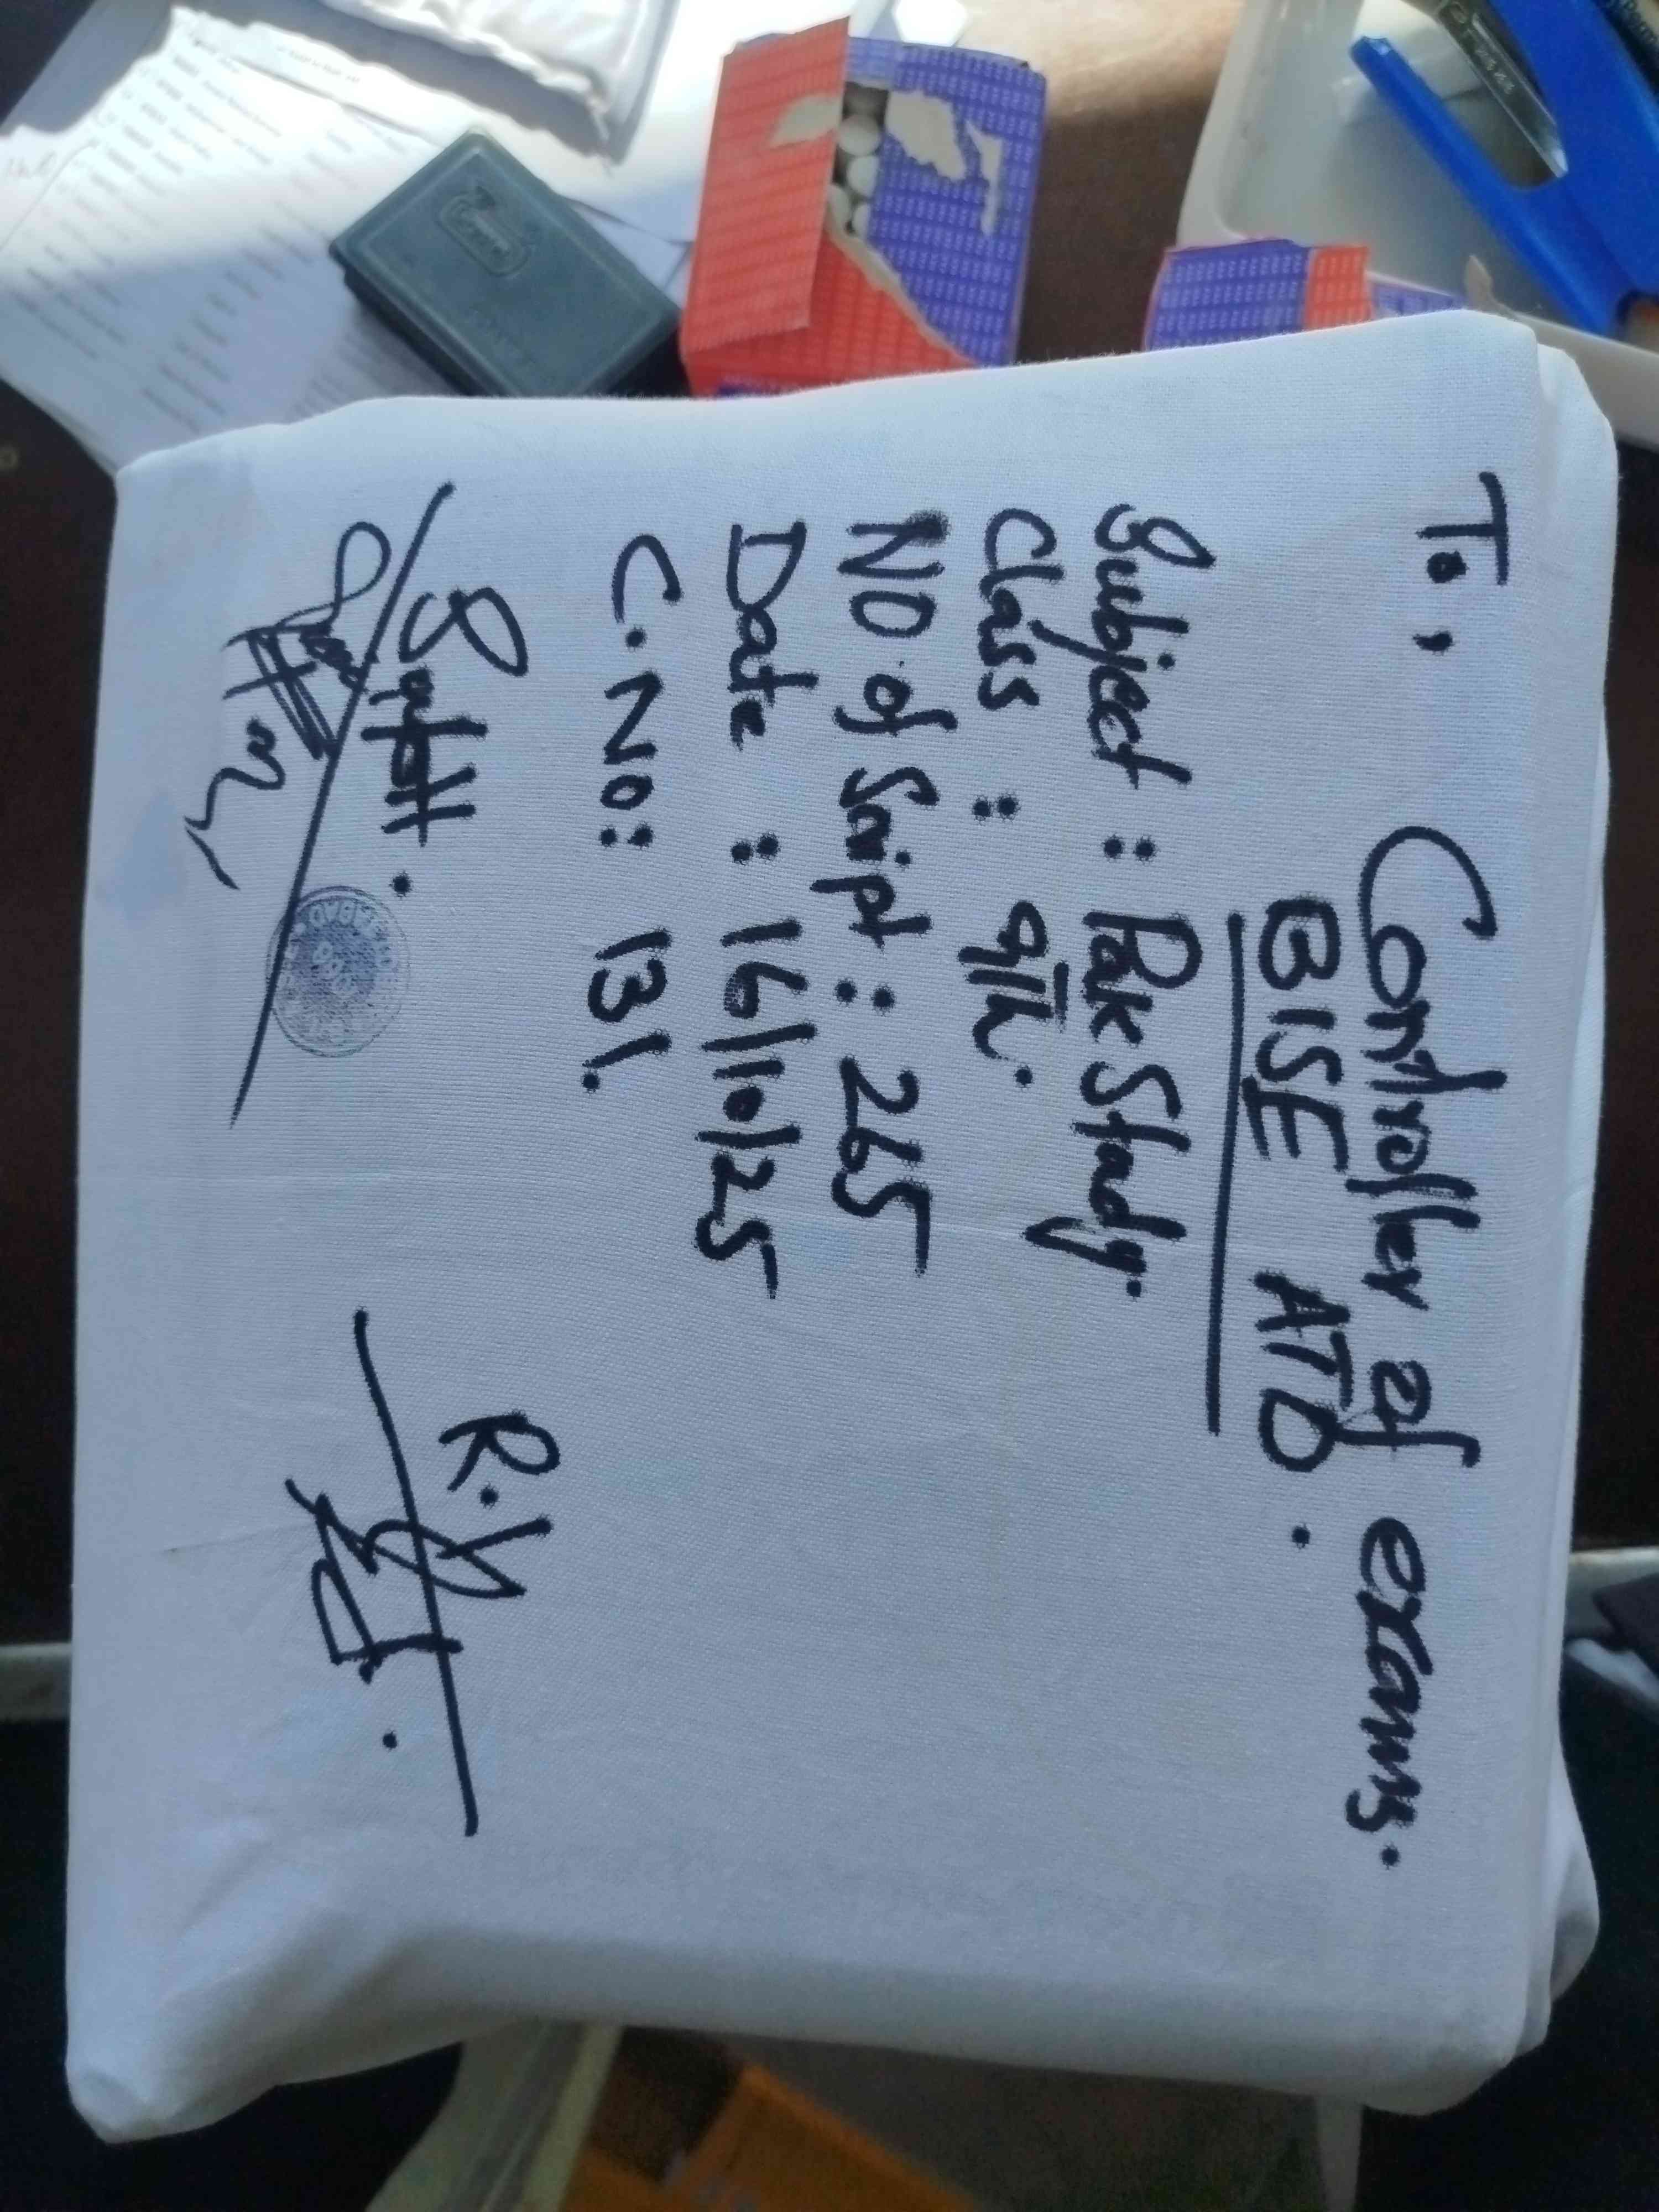 To,
Controller of exams.
BISE ATD.
Subject : Pak Study.
Class : 9th.
NO of Script : 265
Date : 16/10/25
C.No: 131.
Suptt.
R.I